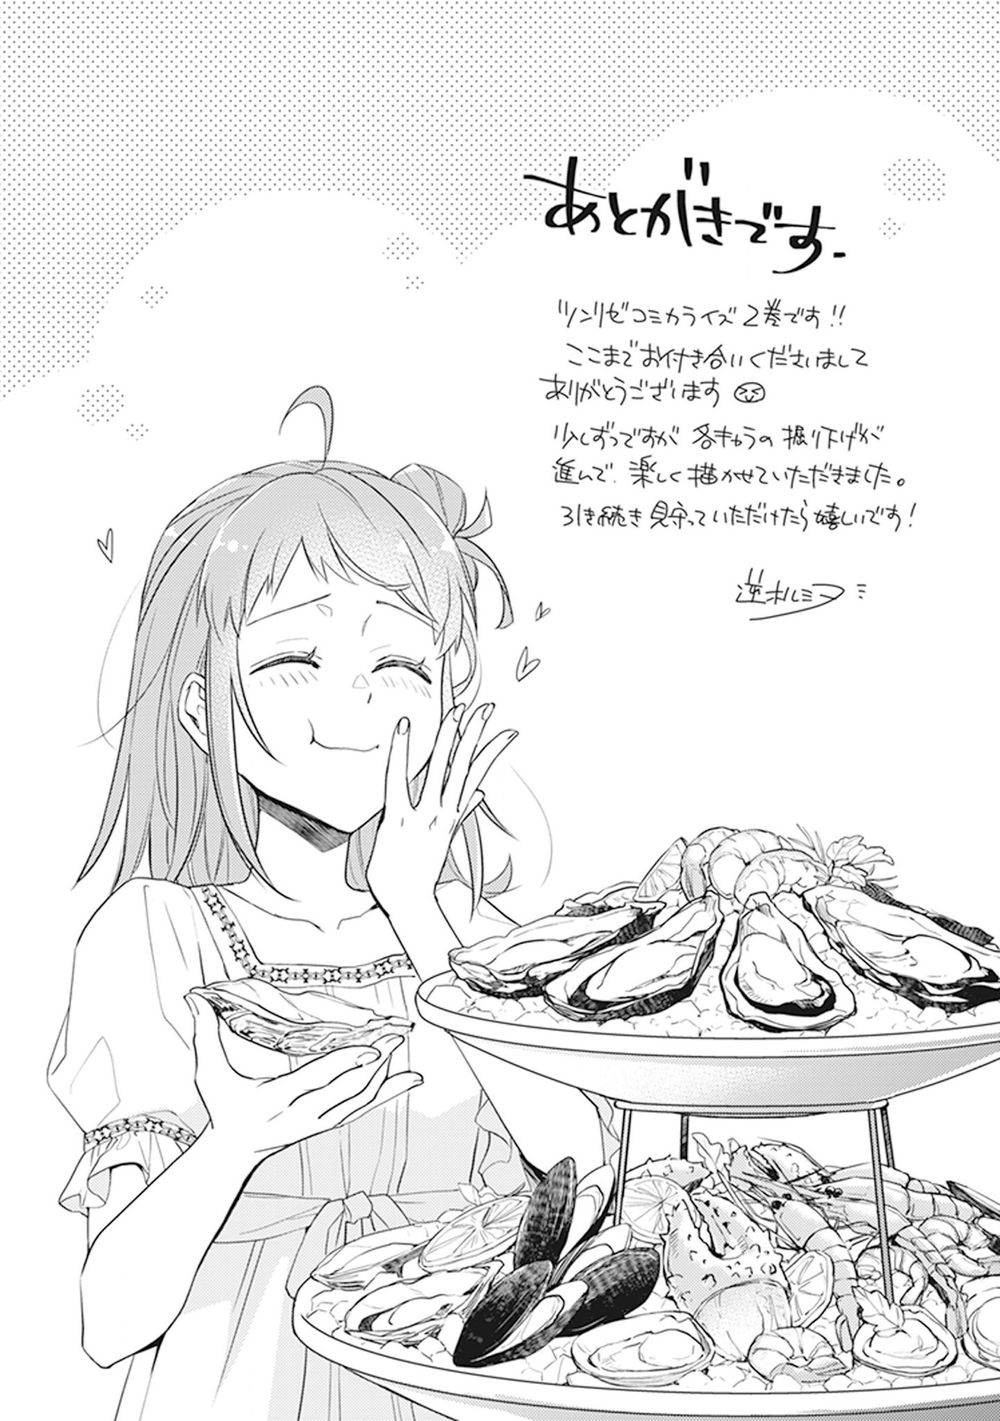 あとがきです。
ツンリゼコミカライズ2巻です!!
ここまでお付き合いくださいまして
ありがとうございます
少しずつですが 各きゅうの掘り下げが
進んで、楽しく描かせていただきました。
引き続き見守っていただけたら嬉しいです!
逆木ルミヲ